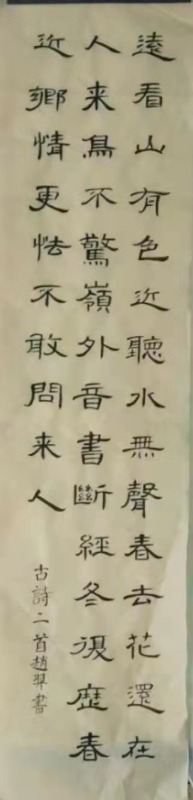 遠看山有色近聽水無聲春去花還在
人來鳥不驚嶺外音書斷經冬復歷春
近鄉情更怯不敢問來人
古詩二首趙翠書